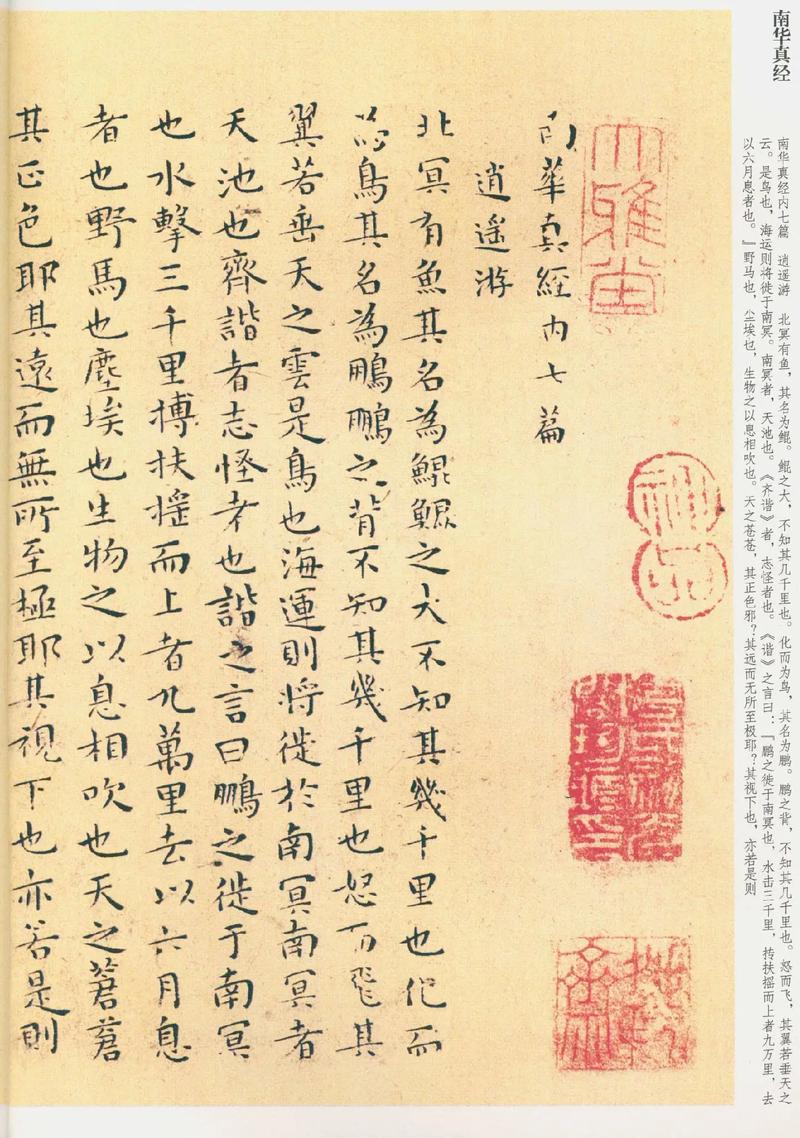 南华真经
南华真经内七篇　逍遥游　北冥有鱼，其名为鲲。鲲之大，不知其几千里也。化而为鸟，其名为鹏。鹏之背，不知其几千里也。怒而飞，其翼若垂天之
云。是鸟也，海运则将徙于南冥。南冥者，天池也。《齐谐》者，志怪者也。《谐》之言曰：『鹏之徙于南冥也，水击三千里，抟扶摇而上者九万里，去
以六月息者也。』野马也，尘埃也，生物之以息相吹也。天之苍苍，其正色邪？其远而无所至极耶？其视下也，亦若是则
大雅堂
神品
南華真經内七篇
逍遥游
北冥有魚其名為鯤鯤之大不知其幾千里也化而
為鳥其名為鵬鵬之背不知其幾千里也怒而飛其
翼若垂天之雲是鳥也海運則將徙於南冥南冥者
天池也齊諧者志怪者也諧之言曰鵬之徙于南冥
也水擊三千里搏扶摇而上者九萬里去以六月息
者也野馬也塵埃也生物之以息相吹也天之蒼蒼
其正色耶其遠而無所至極耶其視下也亦若是則